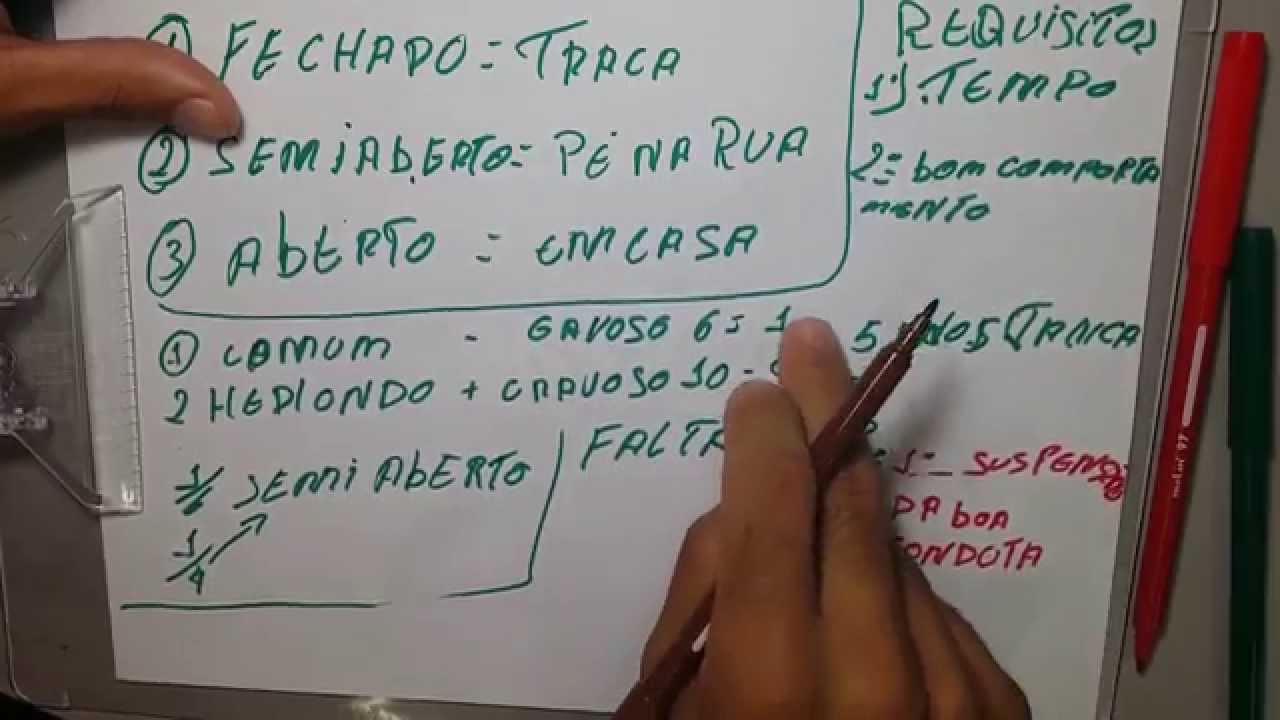 1 FECHADO = TRACA
2 SEMIABERTO = PÉ NA RUA
3 ABERTO = EM CASA
REQUISITOS
1) TEMPO
2= bOM COMPORTA
MENTO
1 COMUM - GAVOSO 6 = 1 5 TRANCA
2 HEDIONDO + CRAVOSO 10 -
1/6 SEMI ABERTO
1/4
FALTA
1= SUSPENSÃO
DA bOA
CONDOTA